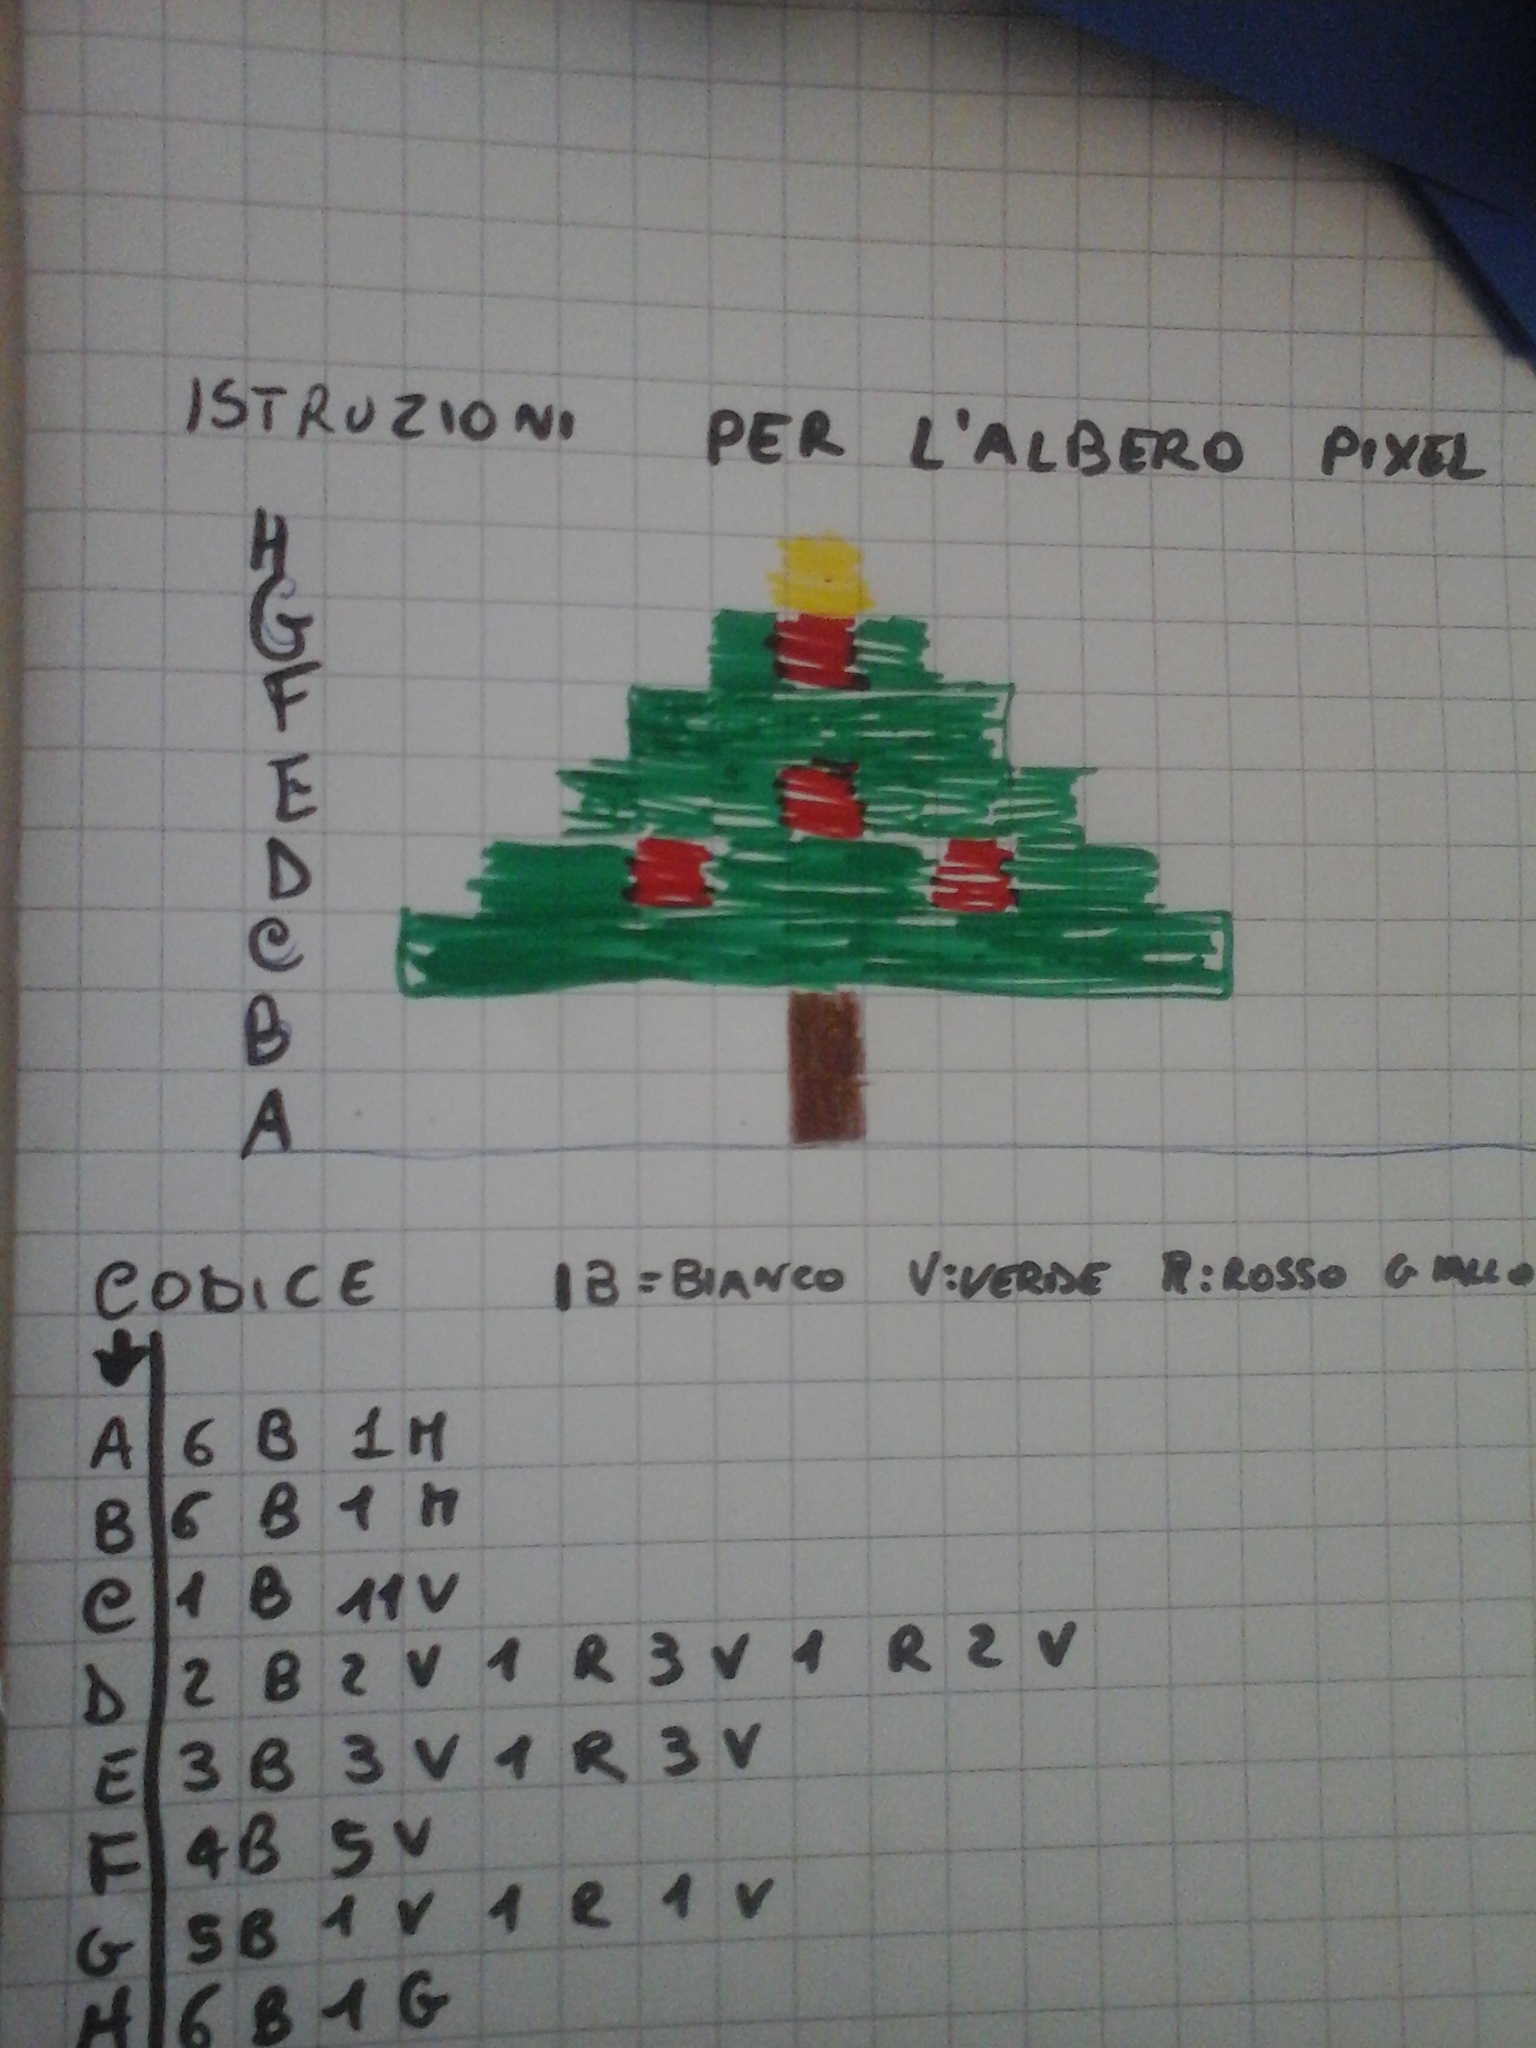 ISTRUZIONI PER L'ALBERO PIXEL
H
G
F
E
D
C
B
A
CODICE 1B=BIANCO V:VERDE R:ROSSO GIALLO
A 6 B 1 M
B 6 B 1 M
C 1 B 11 V
D 2 B 2 V 1 R 3 V 1 R 2 V
E 3 B 3 V 1 R 3 V
F 4 B 5 V
G 5 B 1 V 1 R 1 V
H 6 B 1 G